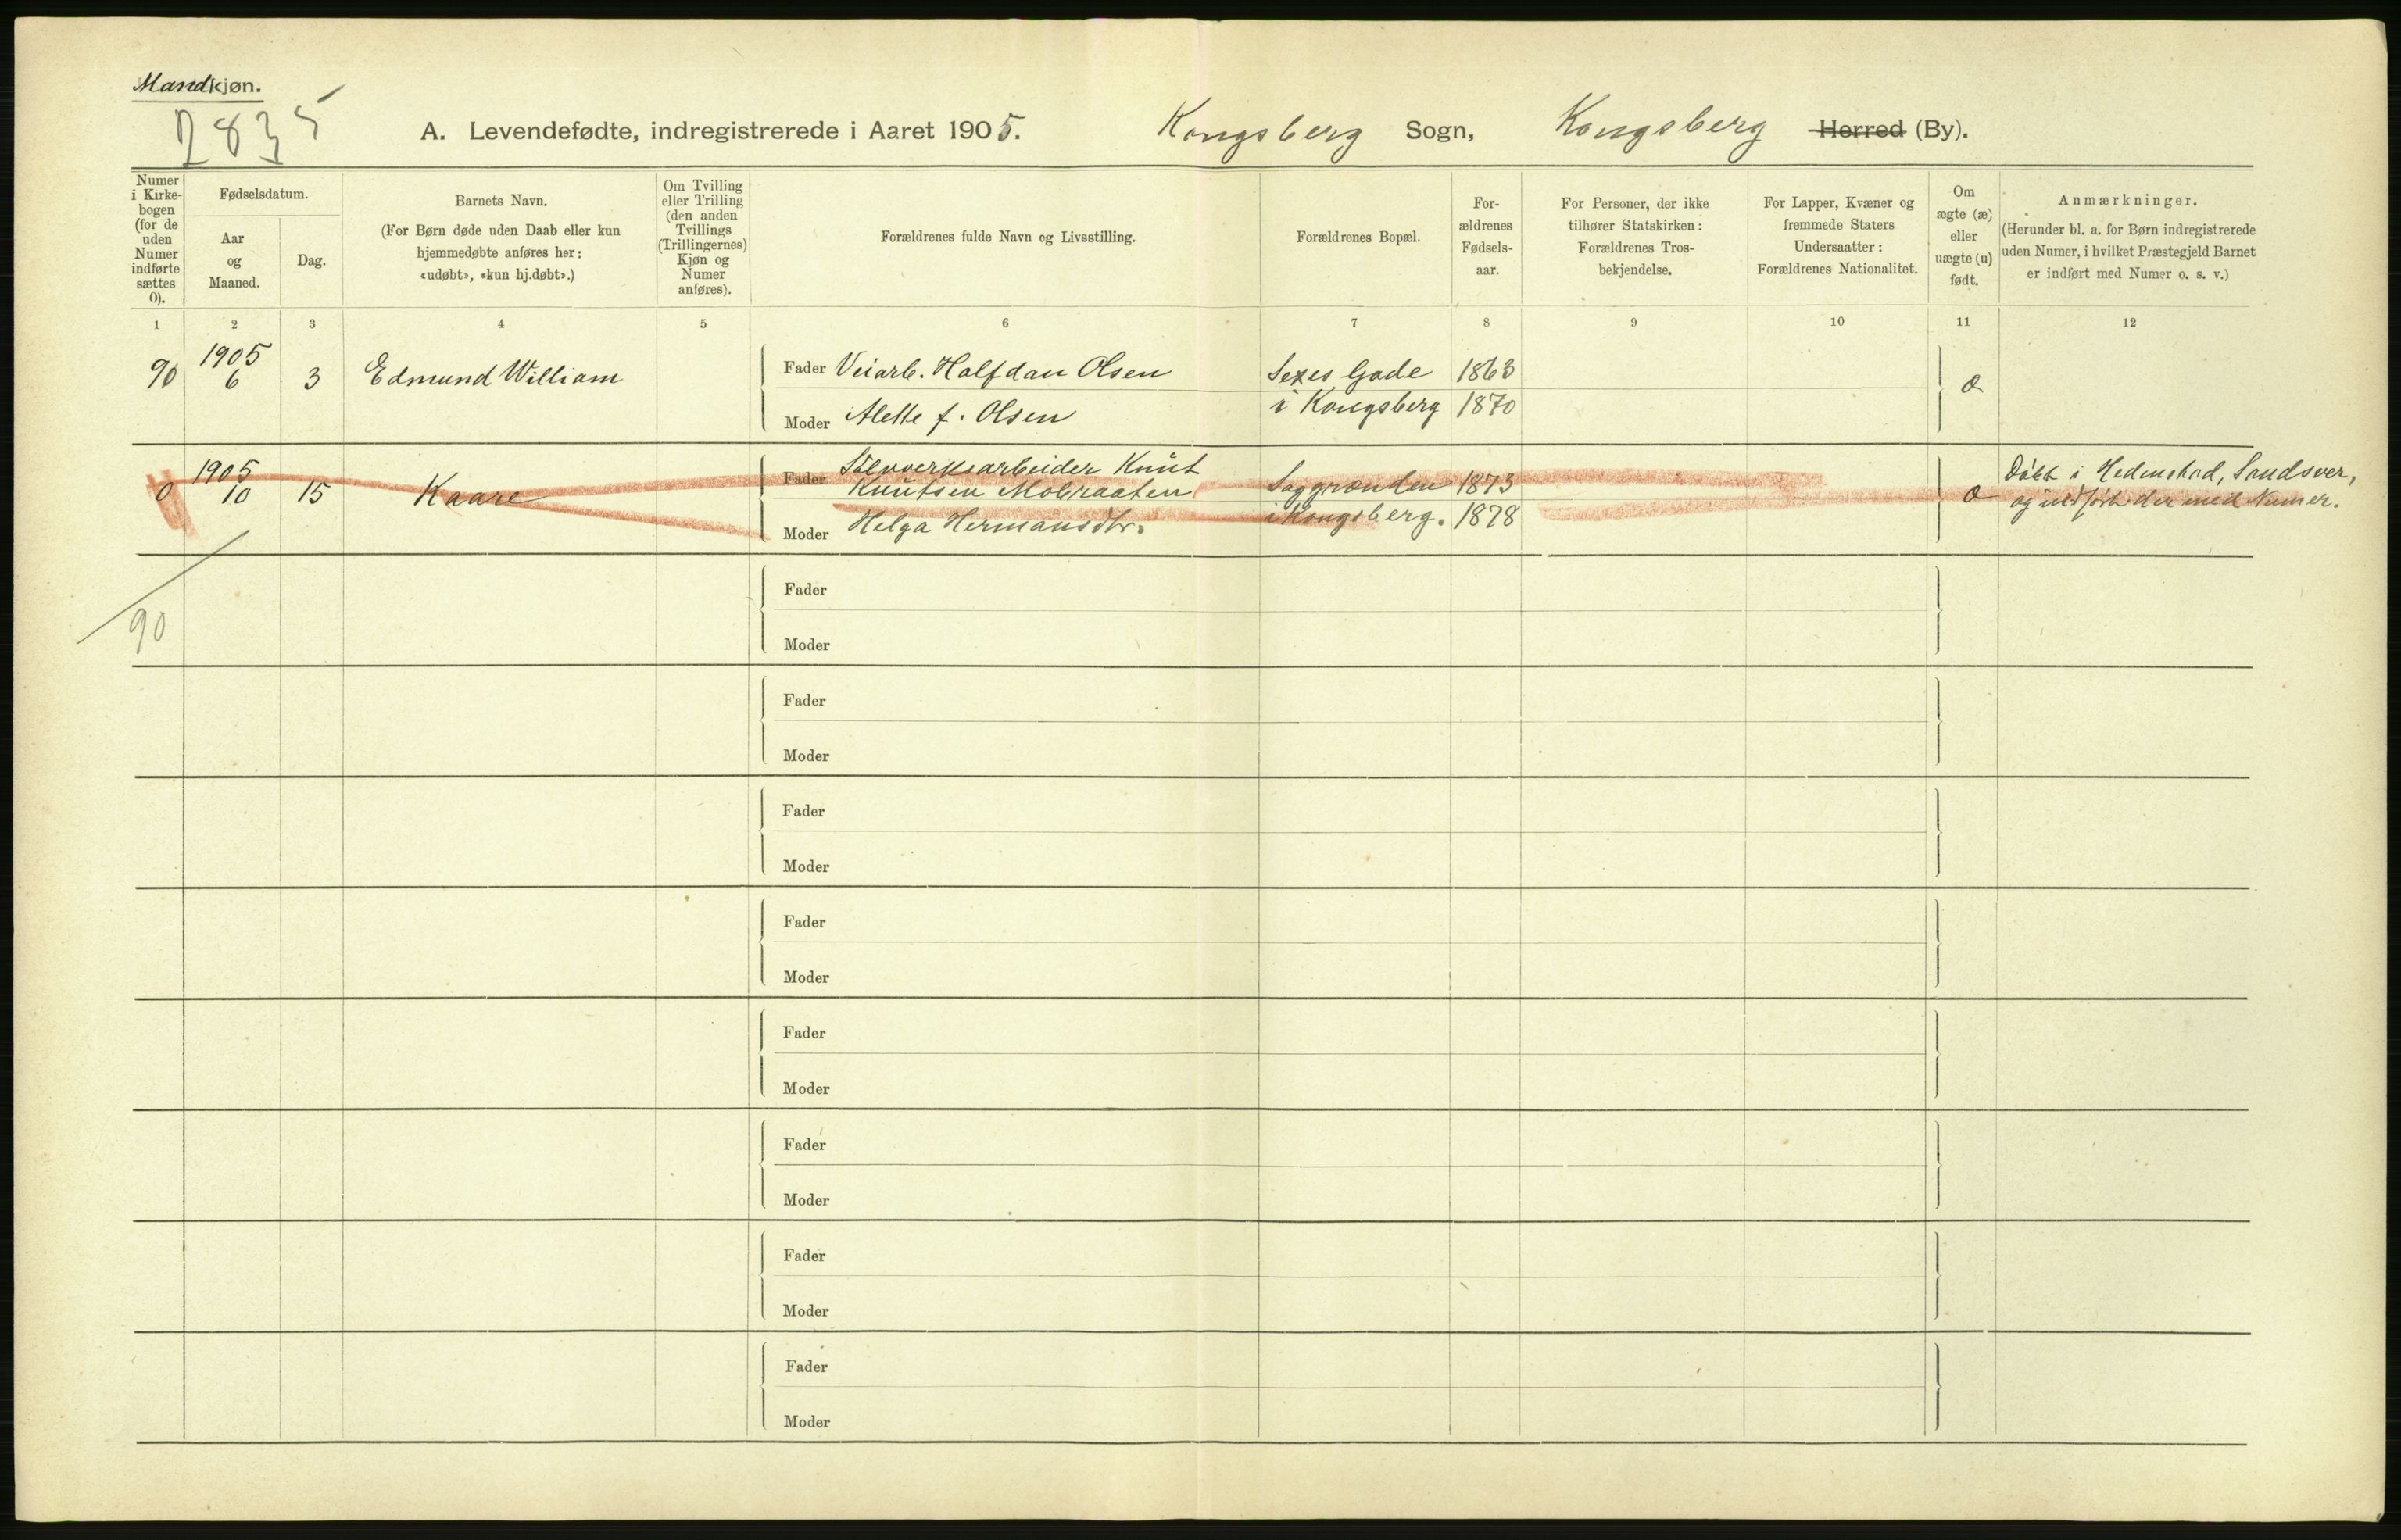 Mandkjøn.
2835
A. Levendefødte, indregistrerede i Aaret 1905. Kongsberg Sogn, Kongsberg Herred (By).
Numer
i Kirke-
bogen
(for de
uden
Numer
indførte
sættes
0).
Fødselsdatum.
Aar
og
Maaned.
Dag.
Barnets Navn.
(For Børn døde uden Daab eller kun
hjemmedøbte anføres her:
«udøbt», «kun hj.døbt».)
Om Tvilling
eller Trilling
(den anden
Tvillings
(Trillingernes)
Kjøn og
Numer
anføres).
Forældrenes fulde Navn og Livsstilling.
Forældrenes Bopæl.
For-
ældrenes
Fødsels-
aar.
For Personer, der ikke
tilhører Statskirken:
Forældrenes Tros-
bekjendelse.
For Lapper, Kvæner og
fremmede Staters
Undersaatter:
Forældrenes Nationalitet.
Om
ægte (æ)
eller
uægte (u)
født.
Anmærkninger.
(Herunder bl. a. for Børn indregistrerede
uden Numer, i hvilket Præstegjeld Barnet
er indført med Numer o. s. v.)
1 2 3 4 5 6 7 8 9 10 11 12
1905
90 6 3 Edmund William Fader Veiarb. Halfdan Olsen Sexes Gade 1863 æ
Moder Alette f. Olsen i Kongsberg 1870
1905 Sølvverksarbeider Knut
0 10 15 Kaare Fader Knutsen Mobraaten Saggrenden 1873 æ Døbt i Hedenstad, Sandsver,
og indført der med Numer.
Moder Helga Hermansdtr. i Kongsberg. 1878
90
Fader
Moder
Fader
Moder
Fader
Moder
Fader
Moder
Fader
Moder
Fader
Moder
Fader
Moder
Fader
Moder